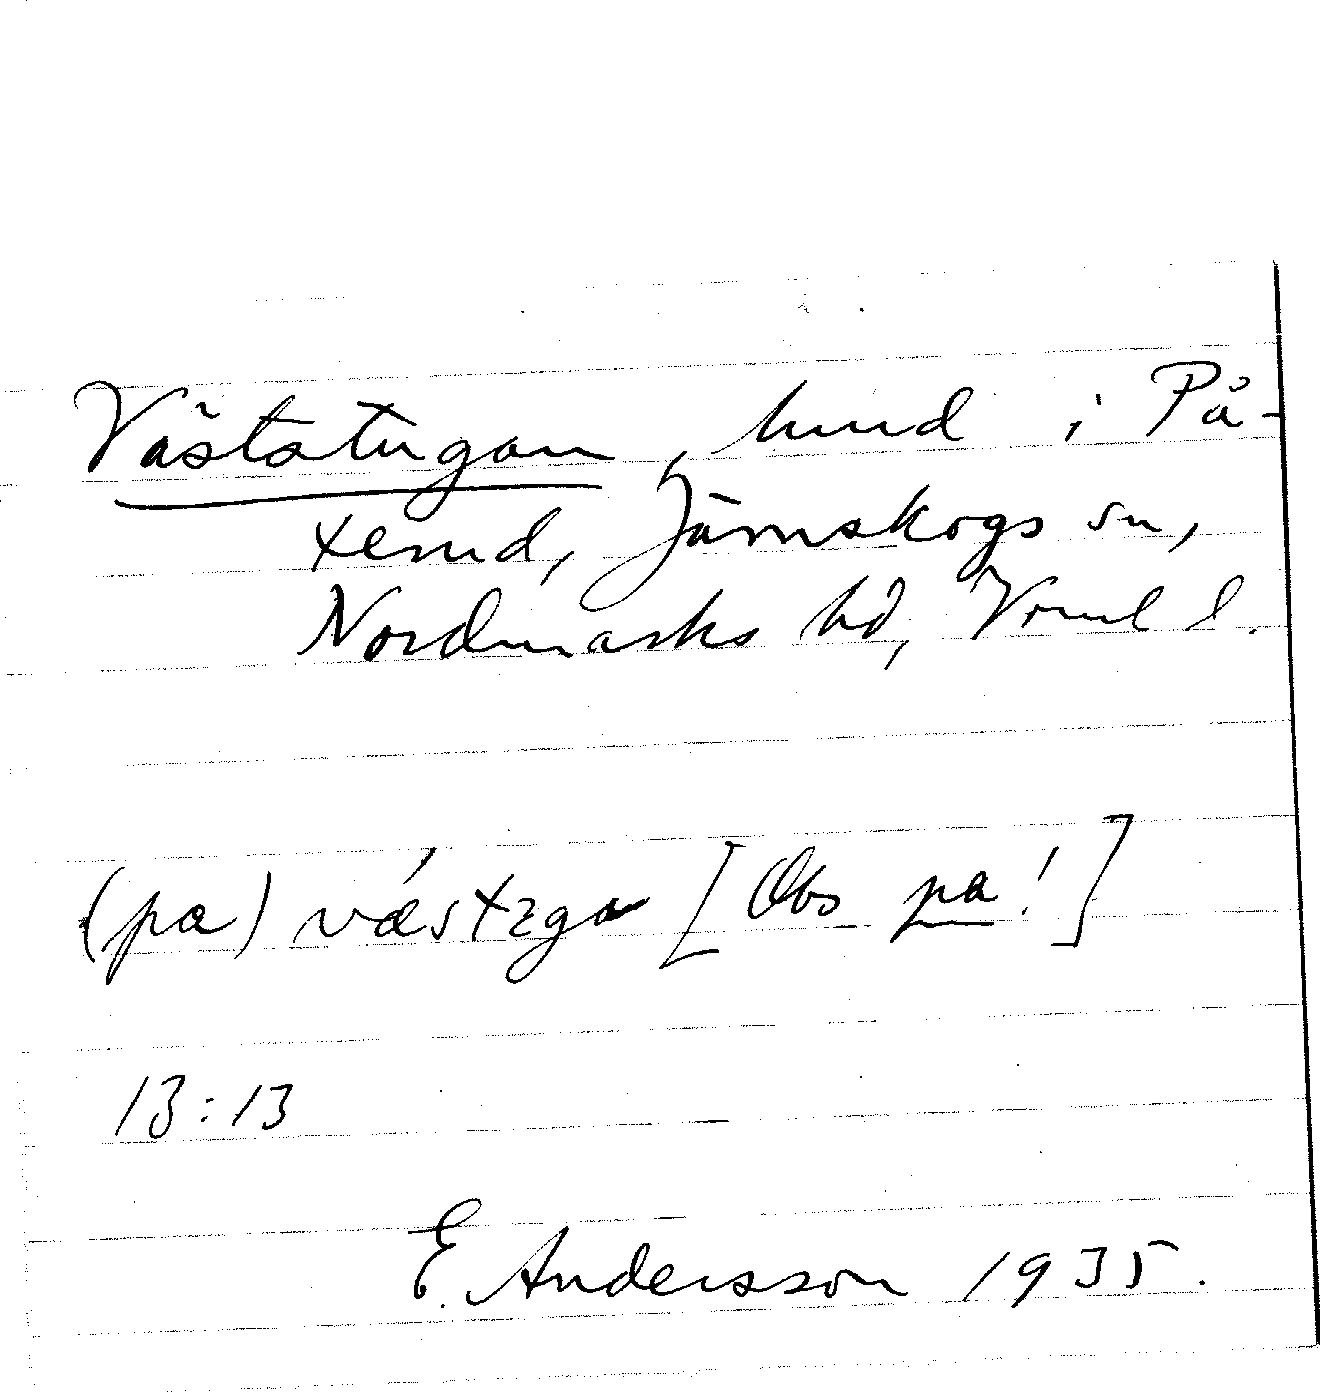 Västatugan, hmd i På-
terud, Järnskogs sn,
Nordmarks hd, Vrml l.
(pα) vǽstzga [Obs pa!]
13:13
E. Andersson 1935.